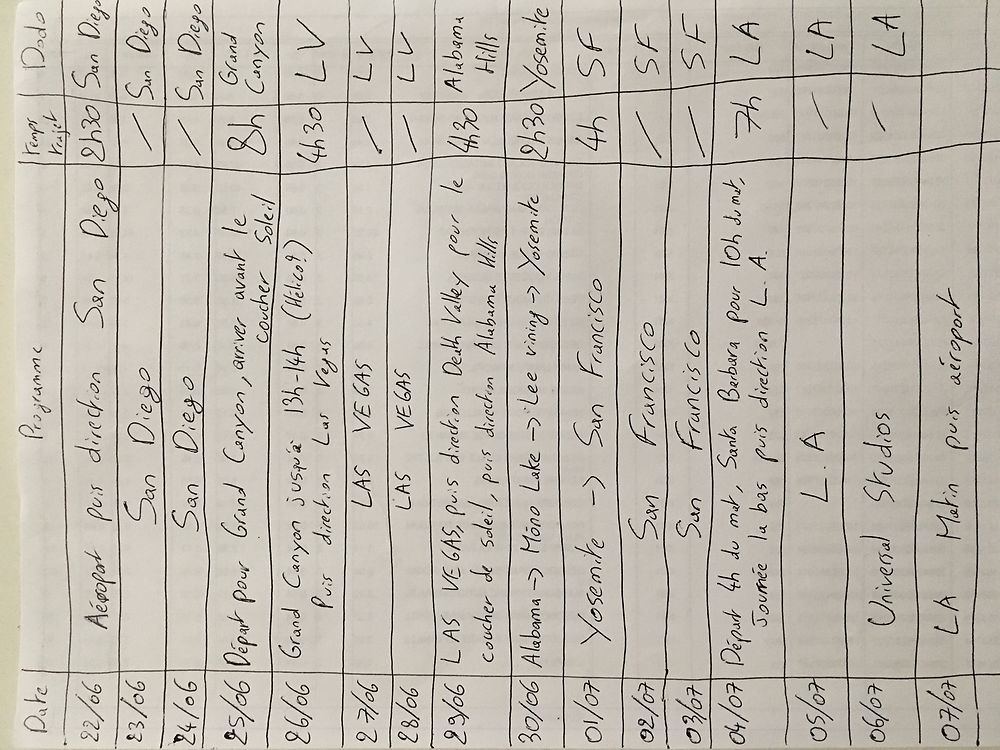 Date Programme Temps trajet Dodo
22/06 Aéroport puis direction San Diego 2h30 San Diego
23/06 San Diego / San Diego
24/06 San Diego / San Diego
25/06 Départ pour Grand Canyon, arriver avant le 8h Grand
coucher Soleil Canyon
26/06 Grand Canyon jusqu'à 13h-14h (Hélico?) 4h30 LV
Puis direction Las Vegas
27/06 LAS VEGAS / LV
28/06 LAS VEGAS / LV
29/06 LAS VEGAS, puis direction Death Valley pour le 4h30 Alabama
coucher de soleil, puis direction Alabama Hills Hills
30/06 Alabama -> Mono Lake -> Lee vining -> Yosemite 2h30 Yosemite
01/07 Yosemite -> San Francisco 4h SF
02/07 San Francisco / SF
03/07 San Francisco / SF
04/07 Départ 4h du mat, Santa Barbara pour 10h du mat, 7h LA
Journée la bas puis direction L.A.
05/07 L.A / LA
06/07 Universal Studios / LA
07/07 LA Matin puis aéroport